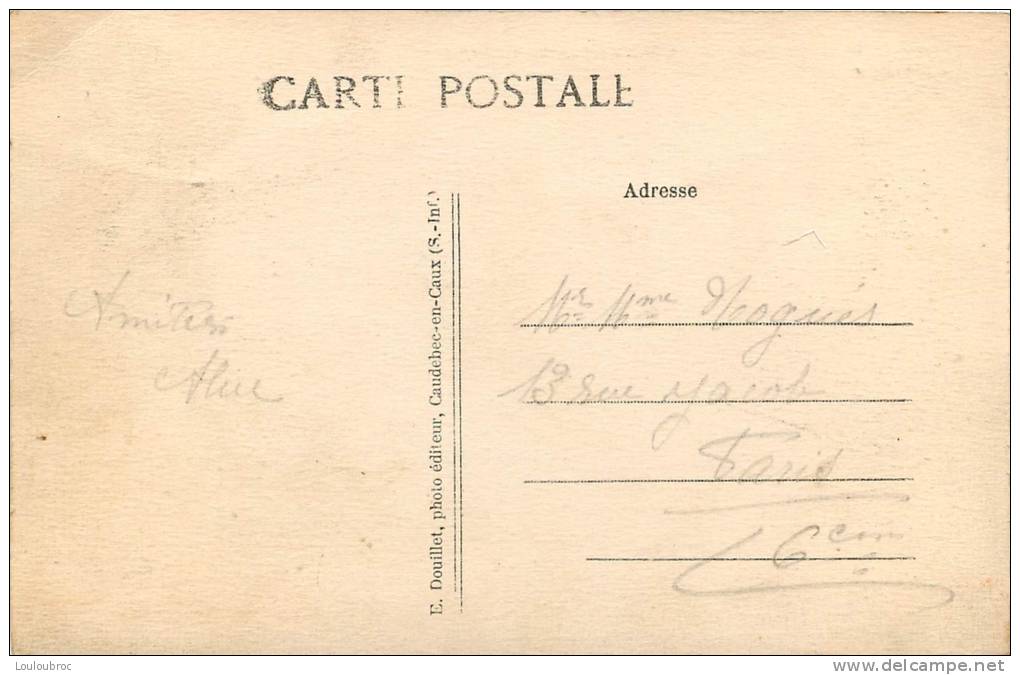 CARTE POSTALE
Adresse
E. Douillet, photo éditeur, Caudebec-en-Caux (S.-Inf.)
Amitiés
Alice
Mr Mme Noguès
13 rue Jacob
Paris
6
Louloubroc
www.delcampe.net